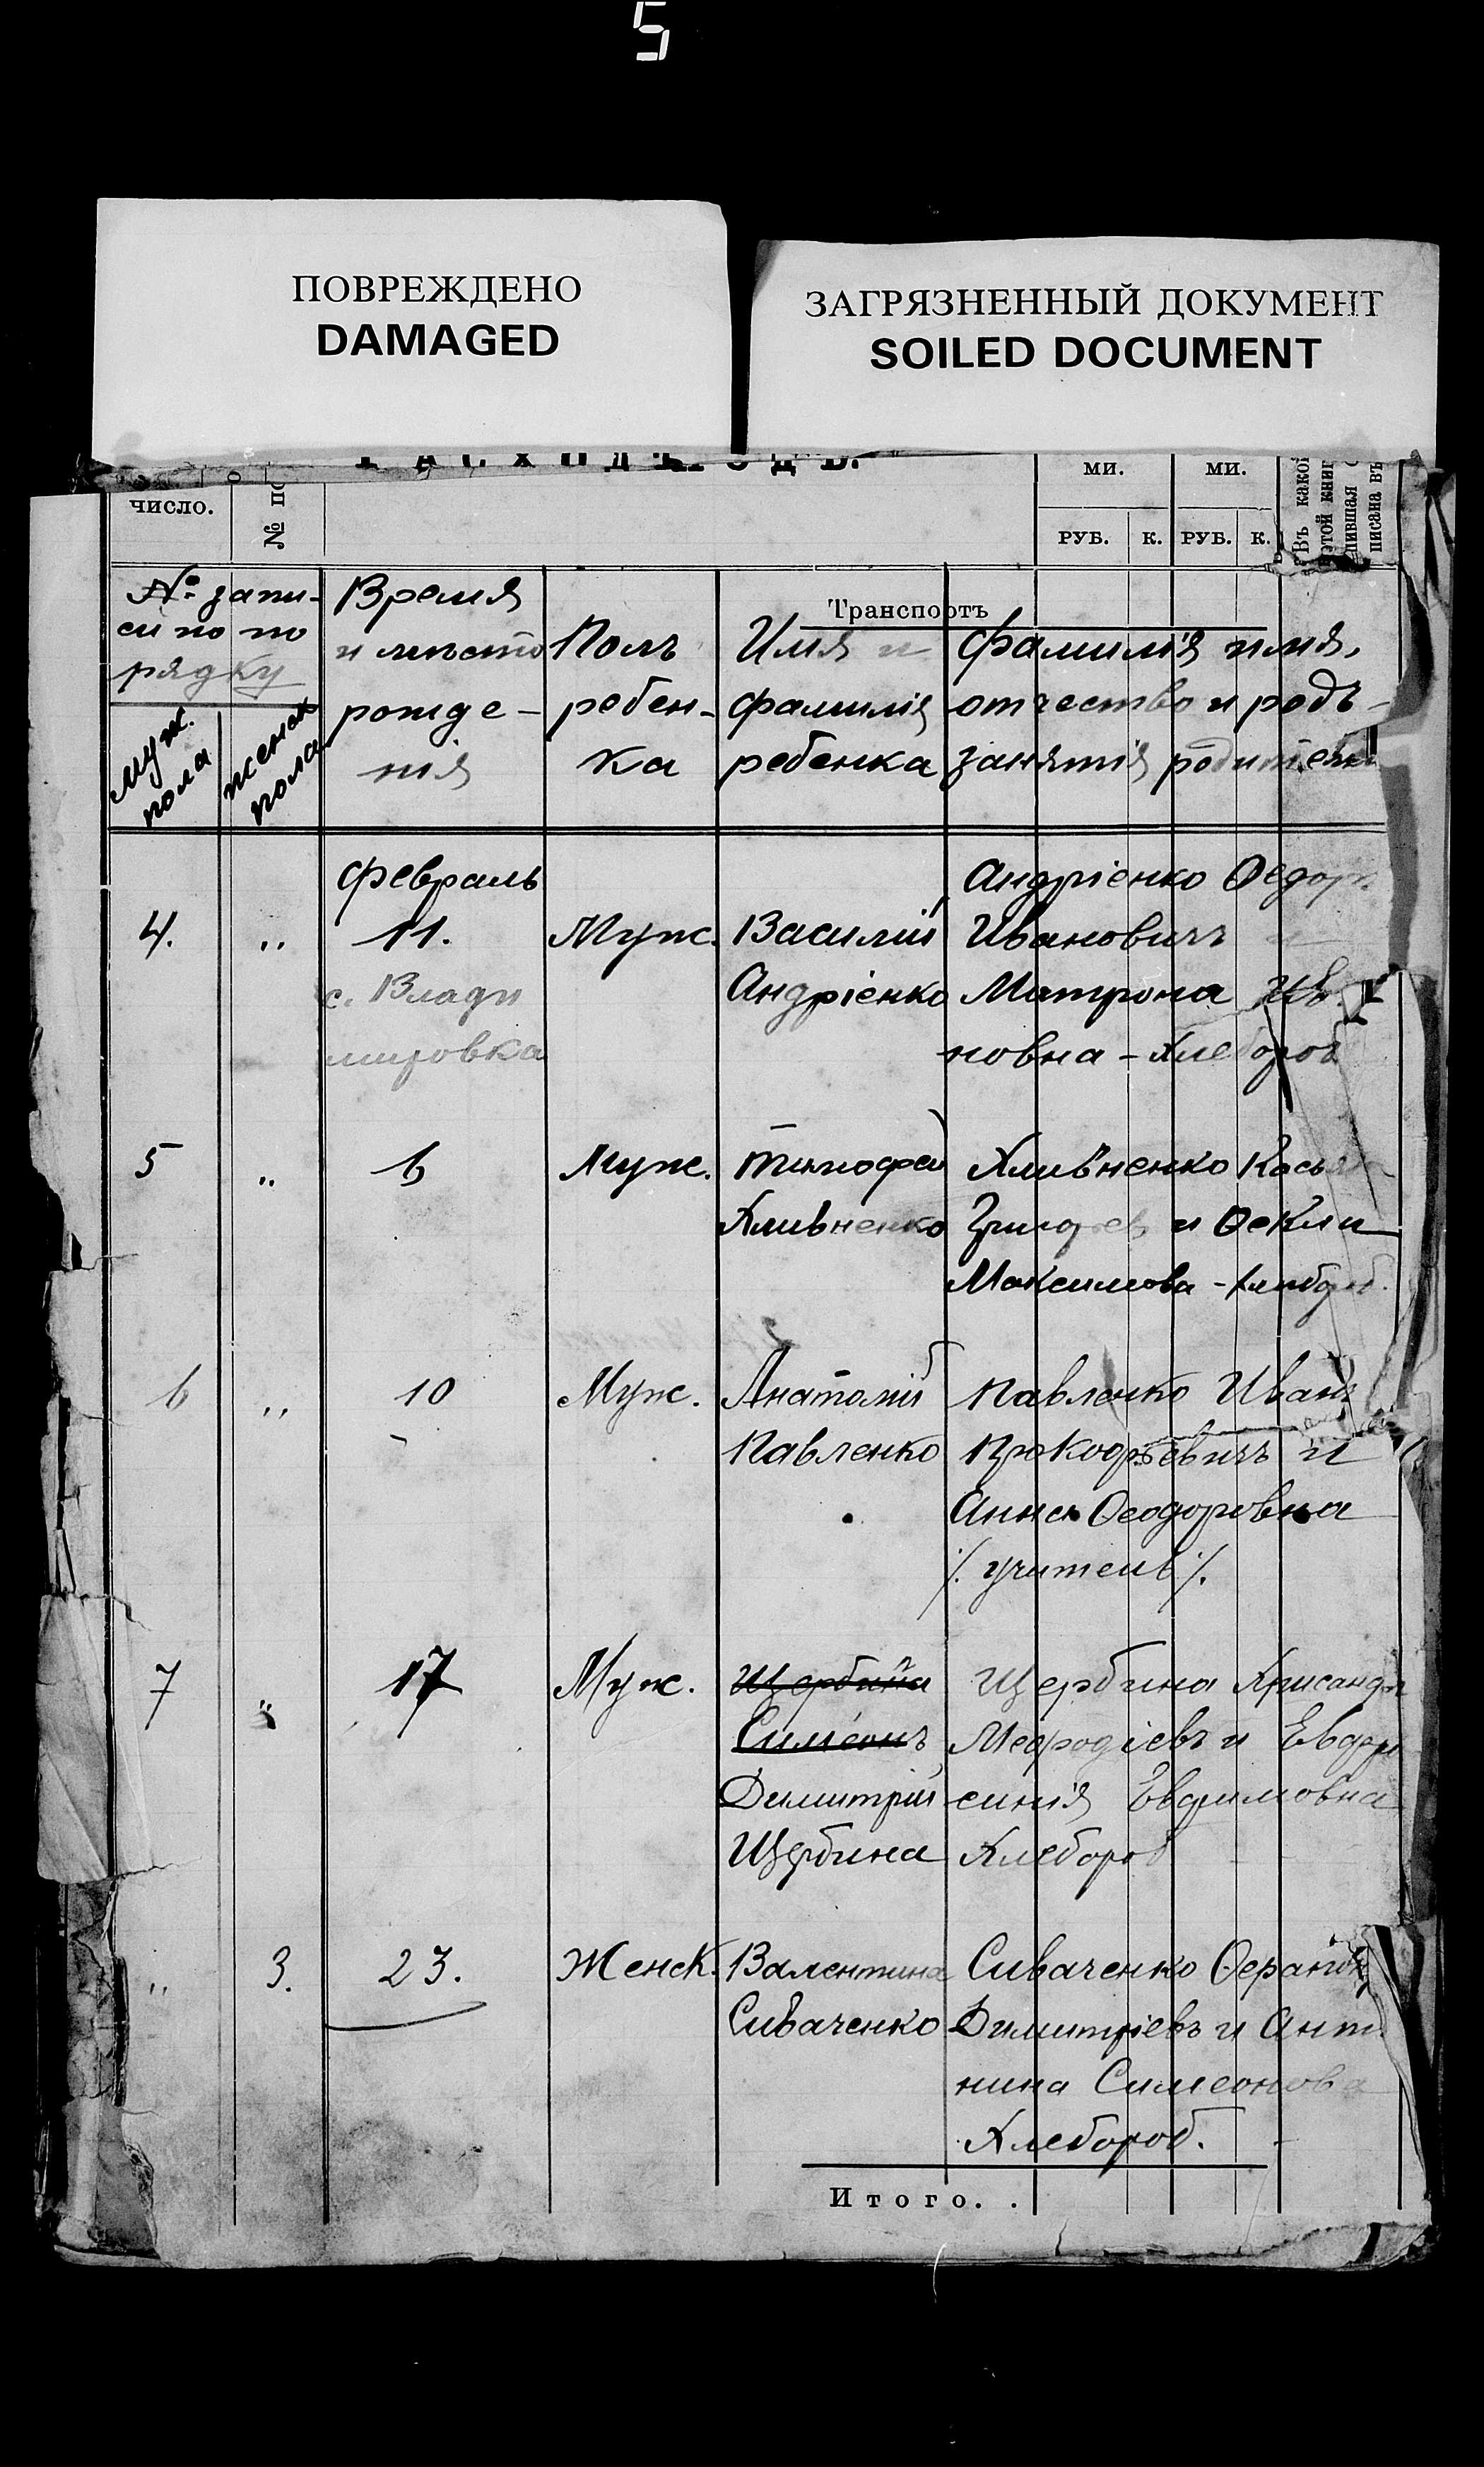 5
ПОВРЕЖДЕНО
DAMAGED
ЗАГРЯЗНЕННЫЙ ДОКУМЕНТ
SOILED DOCUMENT
число.
№ по
ми.
ми.
РУБ. К. РУБ. К.
Въ какой
этой книг
писана въ
Транспортъ
№ запи-
си по по
рядку
муж.
пола
женск
пола
Время
и место
рожде-
нія
Полъ
ребен-
ка
Имя и
фамилія
ребенка
Фамилія имя,
отчество и родъ
занятія родителей
Февраль
4. „ 11. Муж. Василій
с. Влади
мировка
Андріенко
Андріенко Ѳедор
Ивановичъ и
Матрона Ив
новна - Хлебороб
5 „ 6 Муж. Тимофей
Хливненко
Хливненко Касья
Григорьев и Ѳекли
Максимова - хлебороб.
6 „ 10 Муж. Анатолій
Павленко
Павленко Иванъ
Прокофьевичъ и
Анна Ѳеодоровна
/. учитель /.
7 „ 17 Муж. Щербина
Симеонъ
Димитрій
Щербина
Щербина Хрисанфъ
Мефодіевъ и Евфро
синія Евфимовна
Хлебороб
„ 3. 23. Женск. Валентина
Сиваченко
Сиваченко
Димитріевъ и Анто
нина Симеонова
Хлебороб.
Итого. .